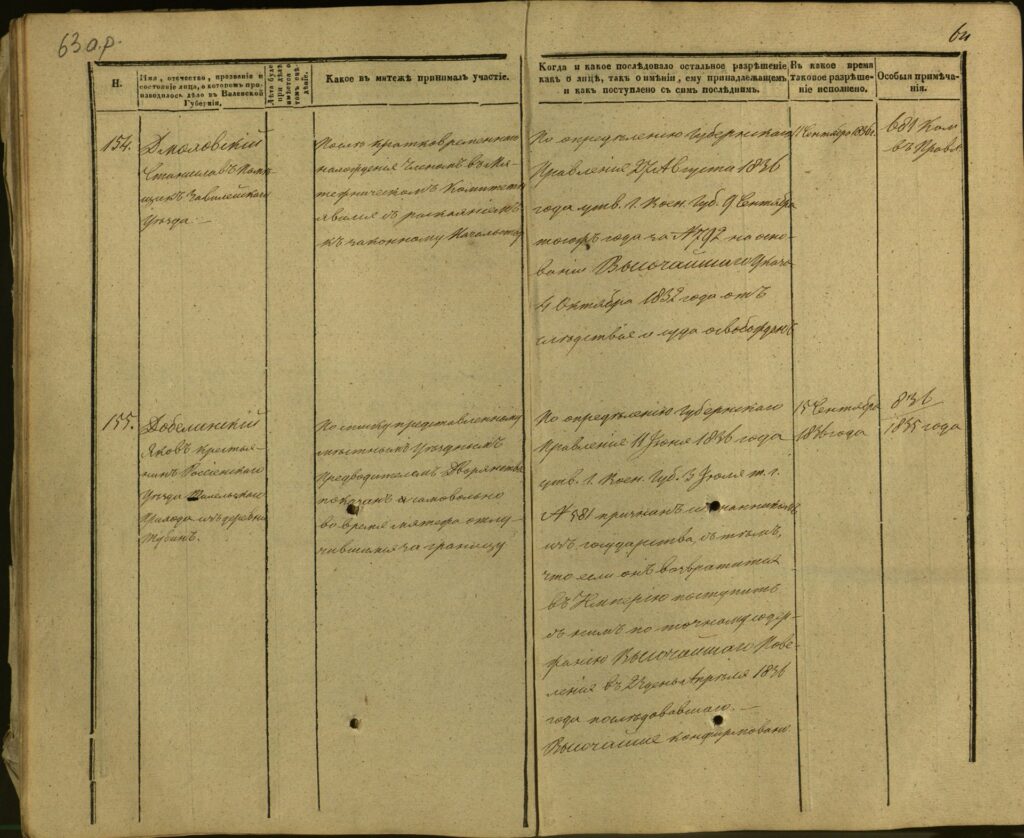 63 а.р.
64
Н.
Имя, отечество, прозваніе и
состояніе лица, о которомъ про-
изводилось дѣло въ Виленской
Губерніи.
Какое въ мятежѣ принималъ участіе.
Когда и какое послѣдовало остальное разрѣшеніе
какъ о лицѣ, такъ о имѣніи, ему принадлежащемъ
и какъ поступлено съ симъ послѣднимъ.
Въ какое время
таковое разрѣше-
ніе исполнено.
Особыя примѣча-
нія.
154.
Станиславъ
Завилейскаго
Уѣзда.
Послѣ кратковременнаго
нахожденія Членомъ въ Мя-
тежническомъ Комитетѣ
явился съ раскаяніемъ
къ законному Начальству
По опредѣленію Губернскаго
Правленія 27 Августа 1836
года утв. Г. Воен. Губ. 9 Сентября
того жъ года за № 792 на осно-
ваніи Высочайшаго Указа
4 Октября 1832 года отъ
слѣдствія и суда освобожденъ
Сентября 1836 г.
155.
Добелинскій
Яковъ крестья-
нинъ Россіенскаго
Уѣзда
Прихода изъ деревни
По списку представленному
мѣстнымъ Уѣзднымъ
Предводителемъ Дворянства
показанъ самовольно
во время мятежа отлу-
чившимся за границу
По опредѣленію Губернскаго
Правленія 11 Іюня 1836 года
утв. Г. Воен. Губ. 3 Іюля т. г.
№ 581 признанъ изгнанникомъ
изъ государства, съ тѣмъ,
что если онъ возвратится
въ Имперію поступить
съ нимъ по точному содер-
жанію Высочайшаго Пове-
ленія въ 23 день Апрѣля 1836
года послѣдовавшаго. —
Высочайше конфирмовано.
15 Сентября
1836 года
836
1835 года